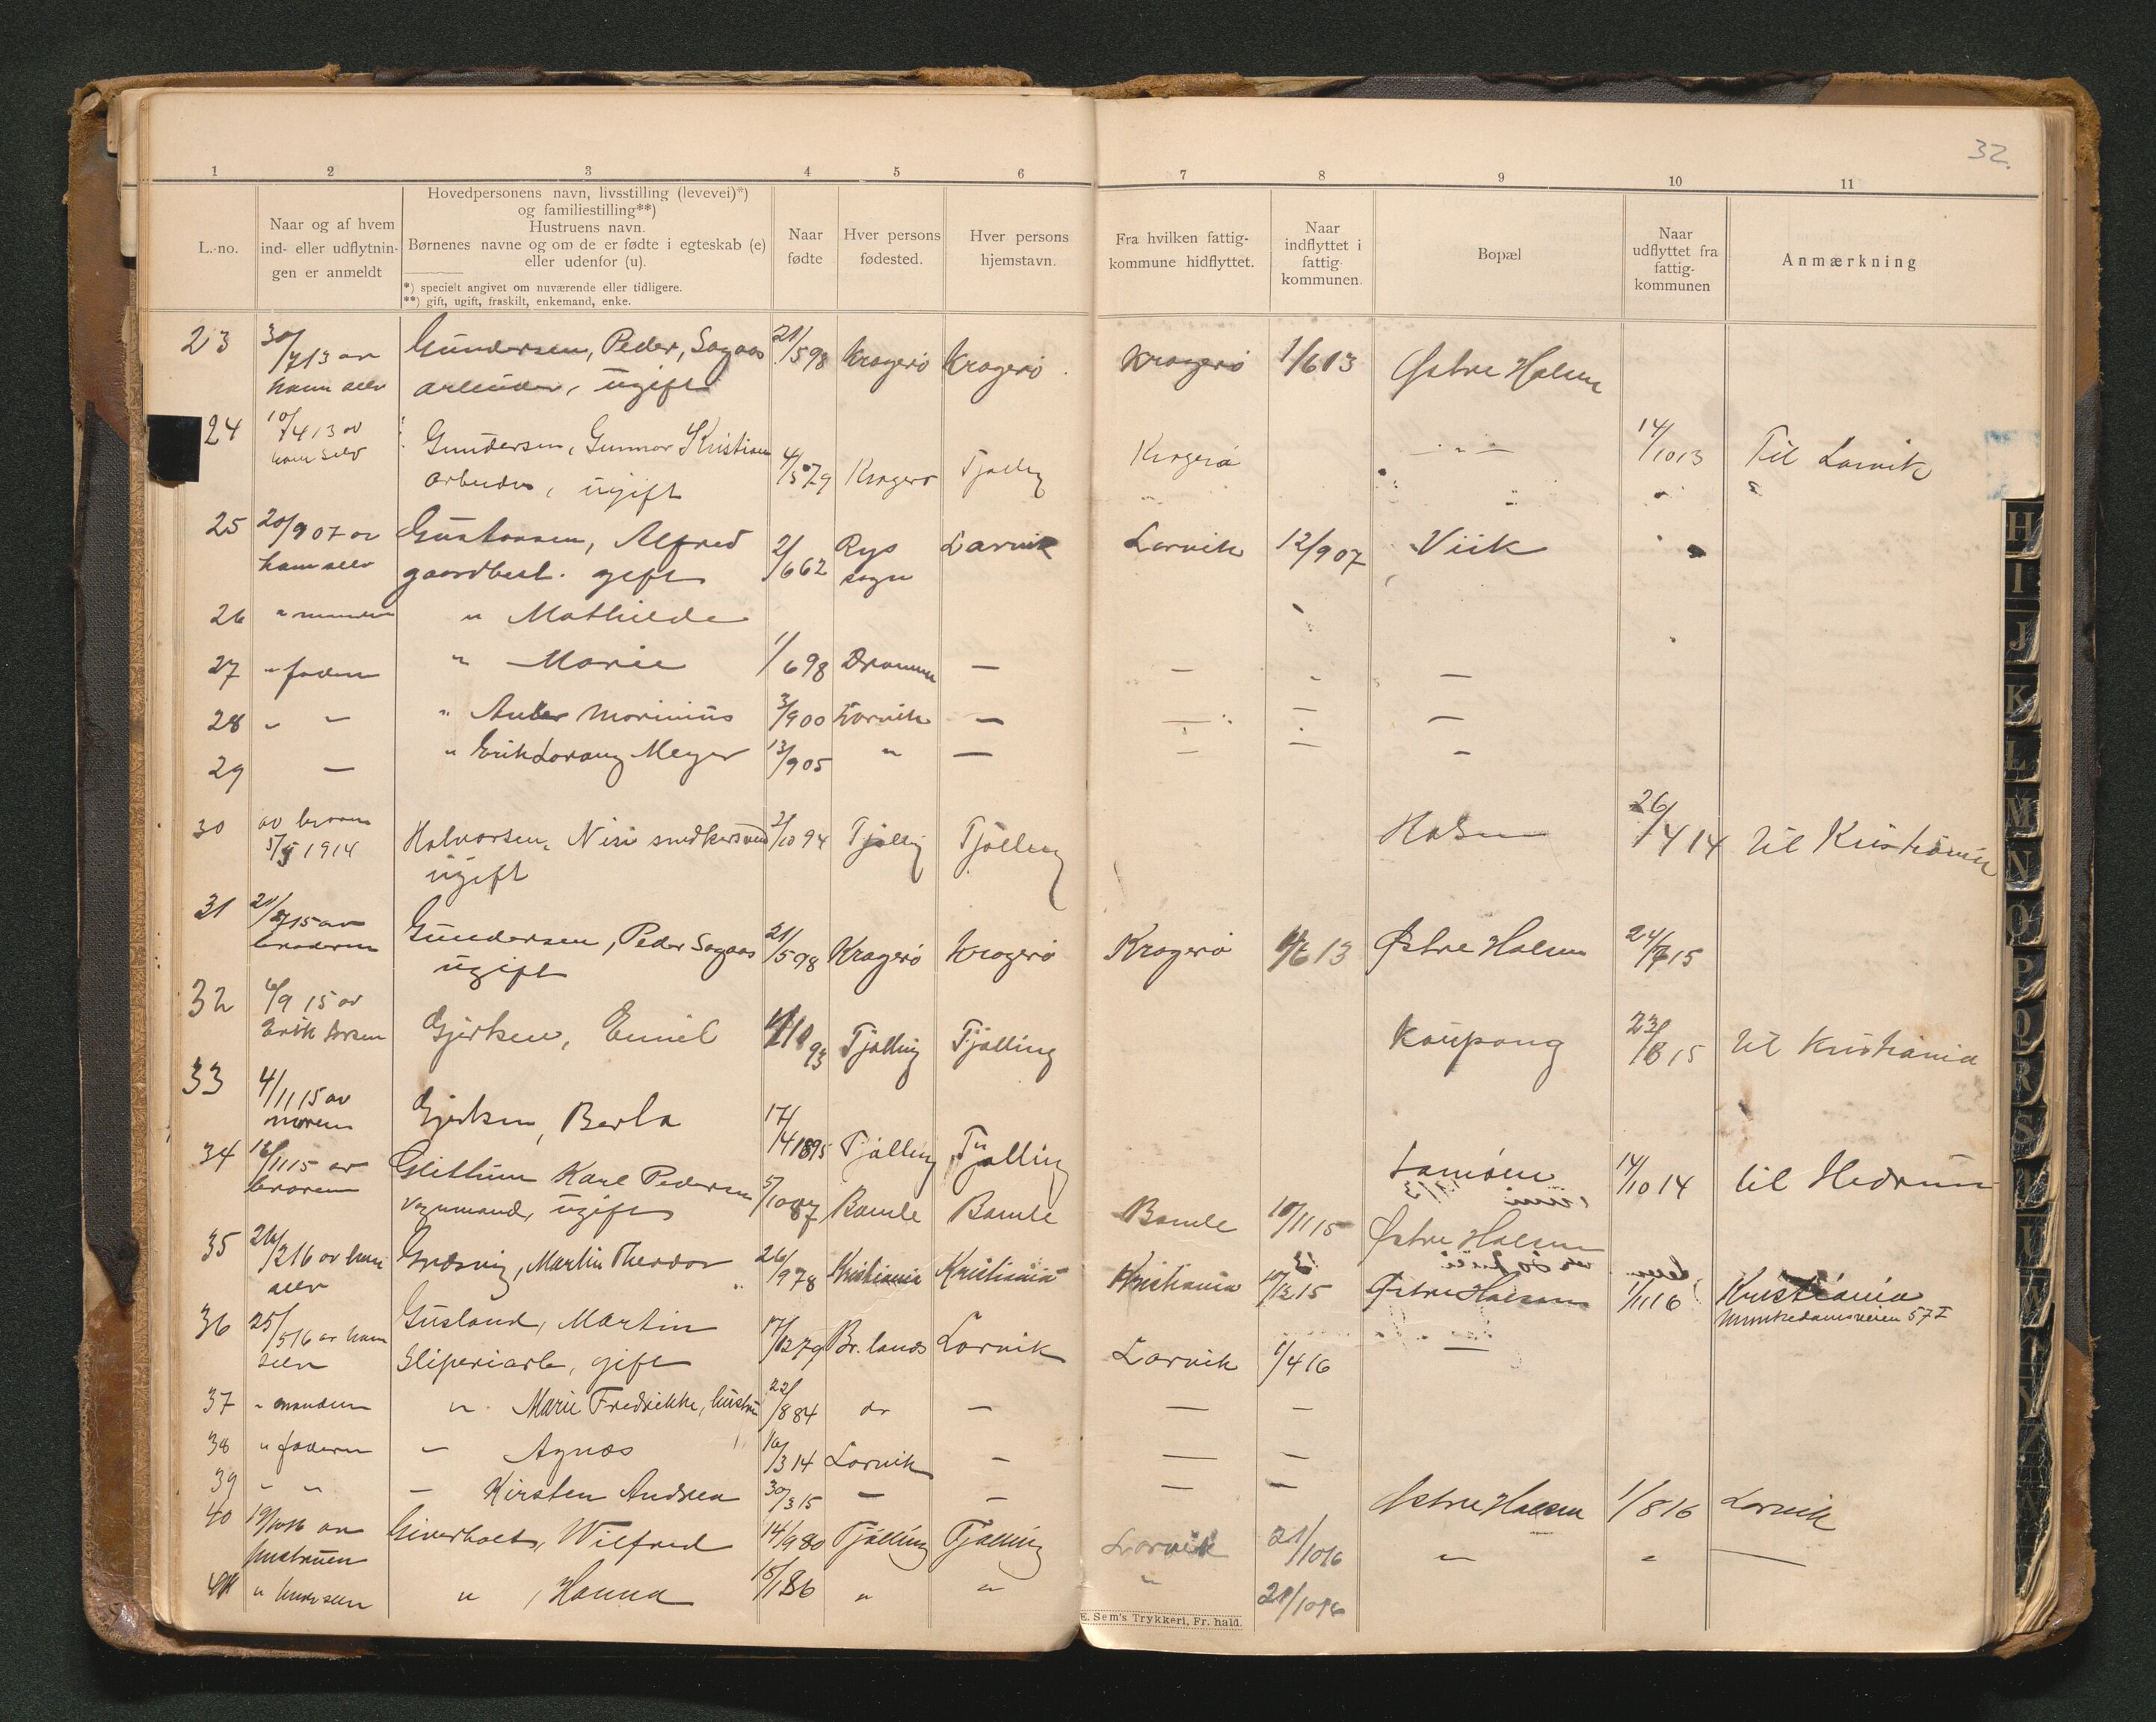 32.
1 2 3 4 5 6 7 8 9 10 11
L.-no.
Naar og af hvem
ind- eller udflytnin-
gen er anmeldt
Hovedpersonens navn, livsstilling (levevei)*)
og familiestilling**)
Hustruens navn.
Børnenes navne og om de er fødte i egteskab (e)
eller udenfor (u).
*) specielt angivet om nuværende eller tidligere.
**) gift, ugift, fraskilt, enkemand, enke.
Naar
fødte
Hver persons
fødested.
Hver persons
hjemstavn.
Fra hvilken fattig-
kommune hidflyttet.
Naar
indflyttet i
fattig-
kommunen.
Bopæl
Naar
udflyttet fra
fattig-
kommunen
Anmærkning
23 30/7 13 av Gundersen, Peder, Sagaas 21/5 98 Kragerø Kragerø Kragerø 1/6 13 Østre Halsen
ham selv arbeider, ugift
24 10/4 13 av Gundersen, Gunnar Kristian 4/5 79 Kragerø Tjølling Kragerø — " — 14/10 13 Til Larvik
ham selv arbeider, ugift
25 20/9 07 av Gustavsen, Alfred 2/6 62 Rys Larvik Larvik 12/9 07 Viik
ham selv gaardbest. gift sogn
26 " manden " Mathilde
27 " faderen " Marie 1/6 98 Drammen — — — —
28 " — " Marinius 3/9 00 Larvik — — — —
29 — " Erik Meyer 13/9 05 " — — — —
30 av broren Halvorsen, snedkersvend 2/10 94 Tjølling Tjølling Halsen 26/4 14 til Kristiania
5/5 1914 ugift
31 21/8 15 av Gundersen, Peder Sagaas 21/5 98 Kragerø Kragerø Kragerø 1/6 13 Østre Halsen 24/7 15
broderen ugift
32 6/9 15 av Gjertsen, Emil 93 Tjølling Tjølling Kaupang 23/8 15 til Kristiania
Erik Larsen
33 4/11 15 av Gjertsen, Berta 17/4 1895 Tjølling Tjølling 14/10 14 til Hedrum
moren
34 12/11 15 av Karl Pedersen 5/10 87 Bamle Bamle Bamle 10/11 15 Østre Halsen
broren vognmand, ugift
35 26/2 16 av ham Martin Theodor 26/9 78 Kristiania Kristiania Kristiania 10/12 15 Østre Halsen 1/11 16 Kristiania
selv Munkedamsveien 57 I
36 25/5 16 av ham Gusland, Martin 17/12 79 Br.lanes Larvik Larvik 1/4 16 — " —
selv Sliperiarb, gift
37 " manden " Marie Fredrikke, hustru 22/8 84 do — — —
38 " faderen — Agnæs 16/3 14 Larvik — — —
39 " " — Kirsten Andrea 30/3 15 — — — — Østre Halsen 1/8 16 Larvik
40 19/10 16 av Giverholt, Wilfred 14/9 80 Tjølling Tjølling Larvik 21/10 16 " " —
hustruen
41 " hende selv " , Hanna 15/1 86 " " " 21/10 16
E. Sem's Trykkeri, Fr. hald.
H
I
J
K
L
M
N
O
P
Q
R
S
U
W
Y
Z